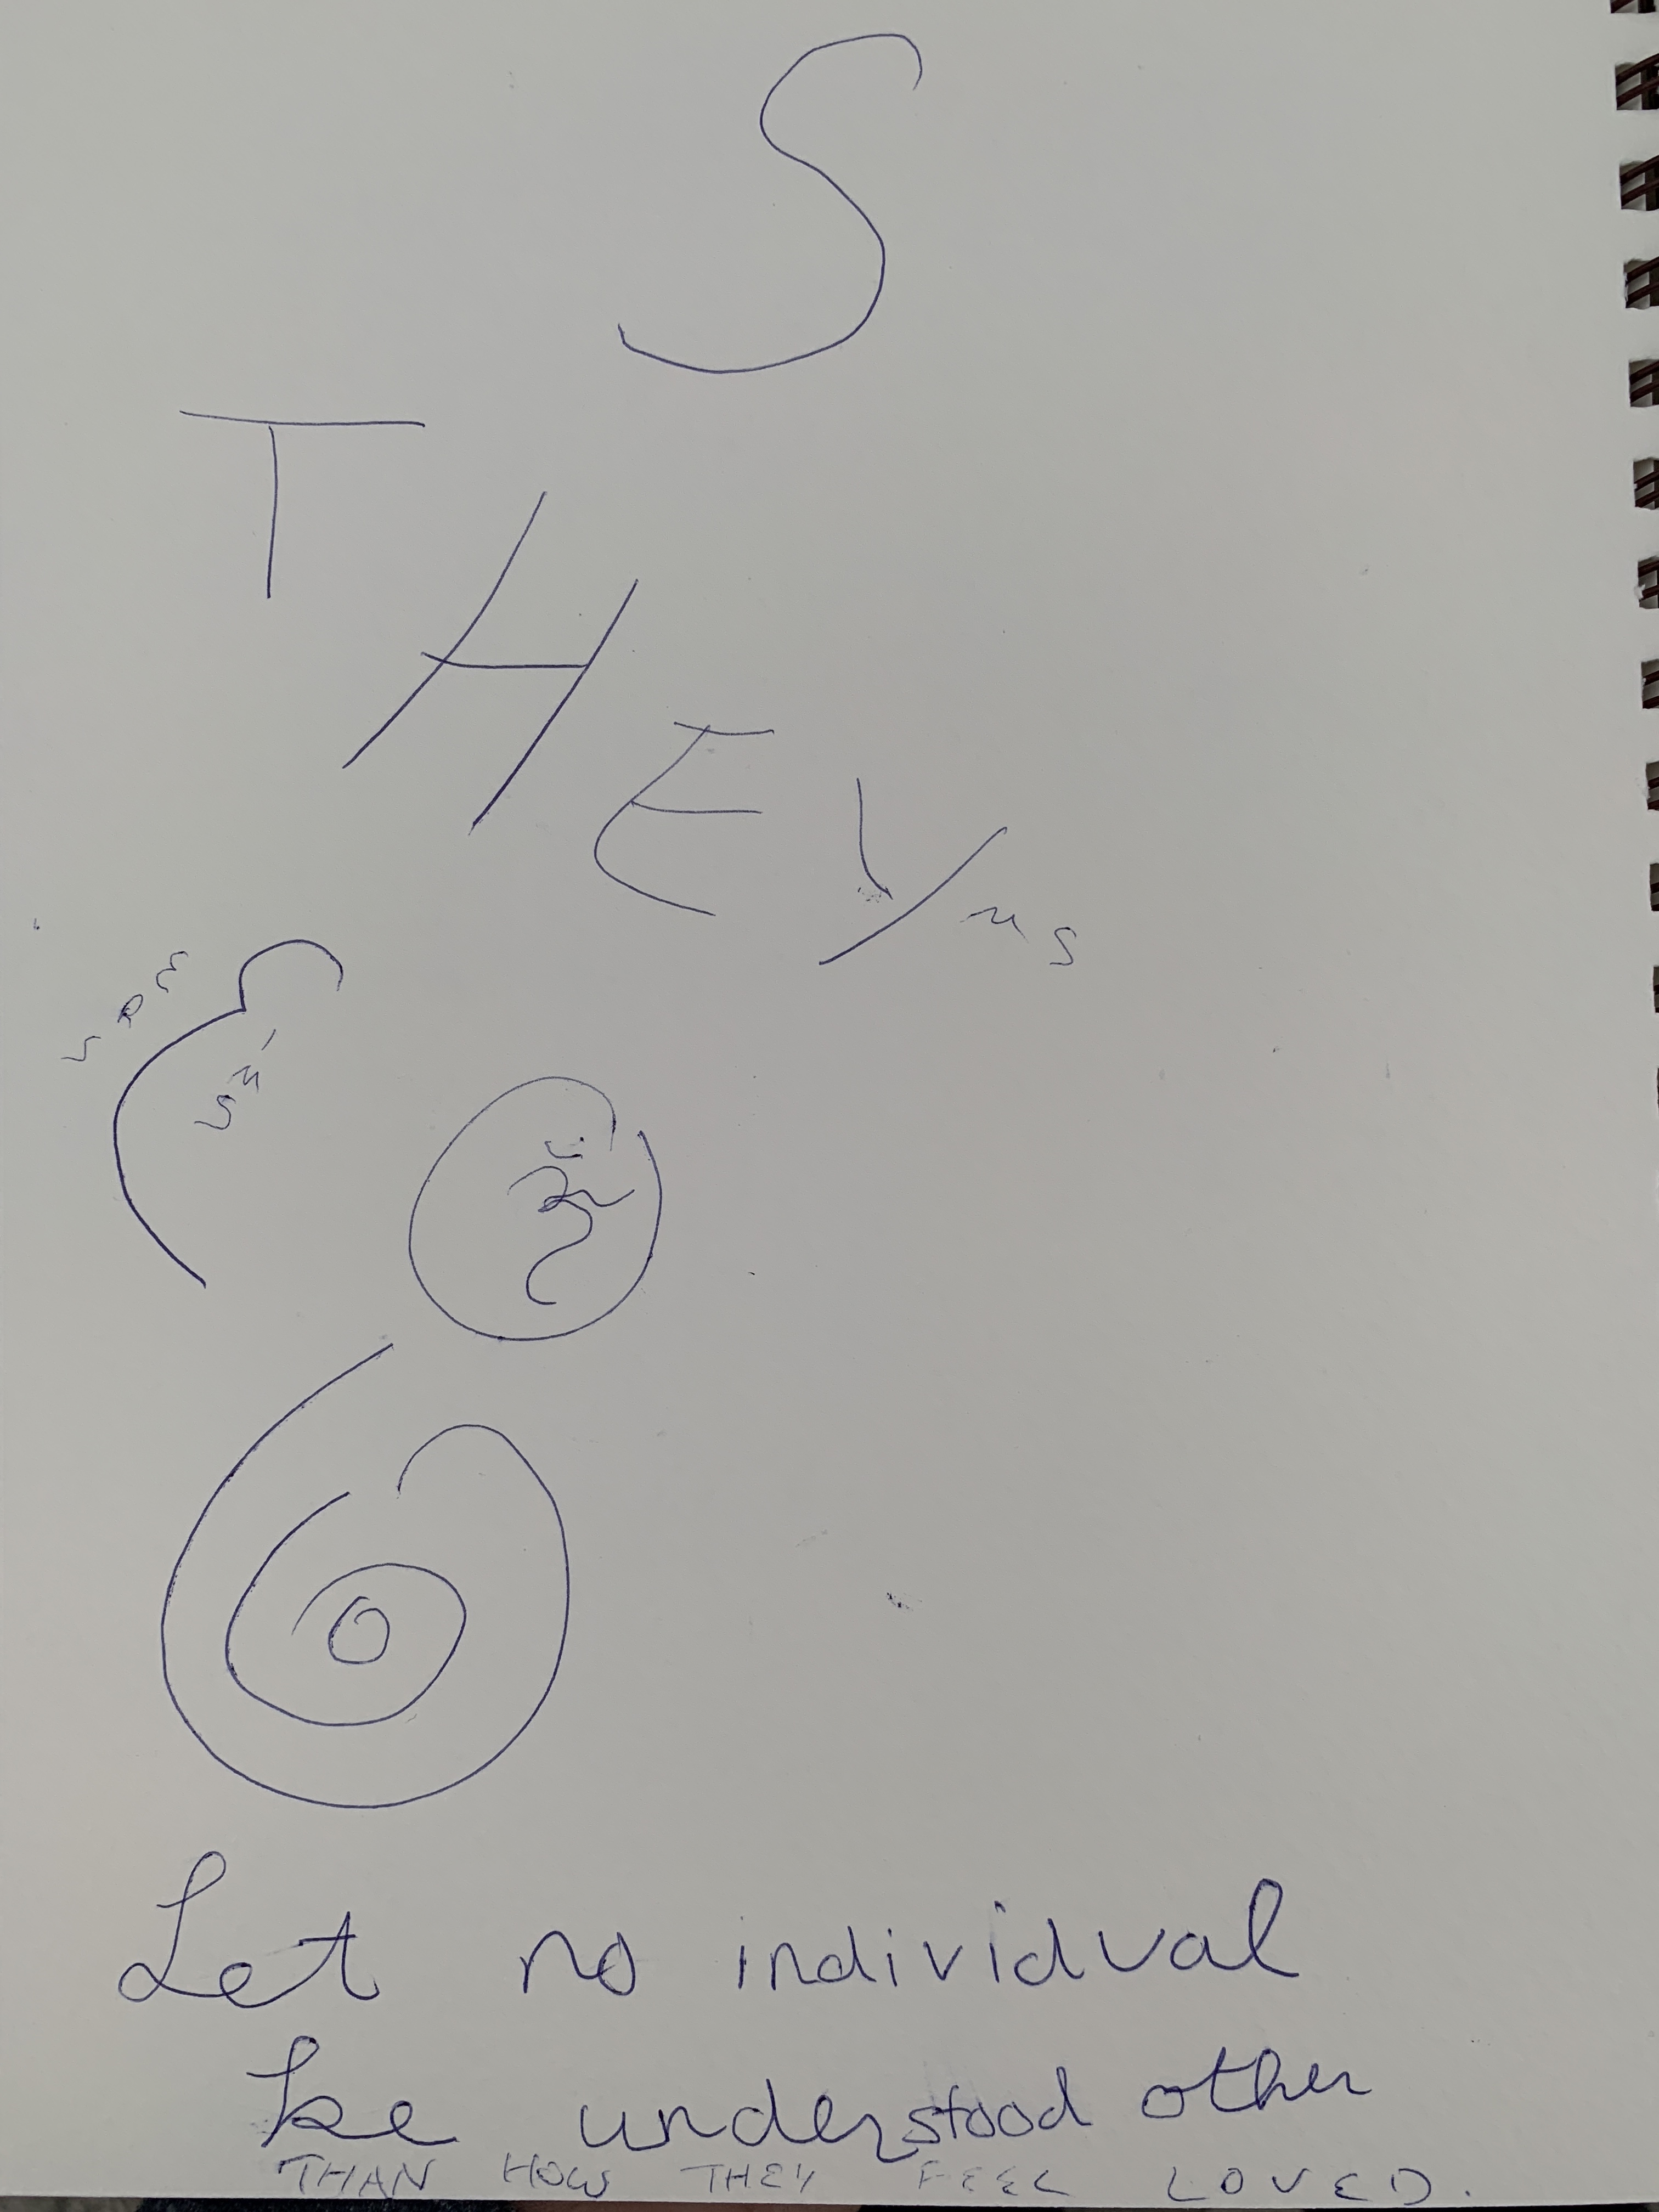 S
THEY
ms
ॐ
Let no individual
be understood other
THAN HOW THEY FEEL LOVED.